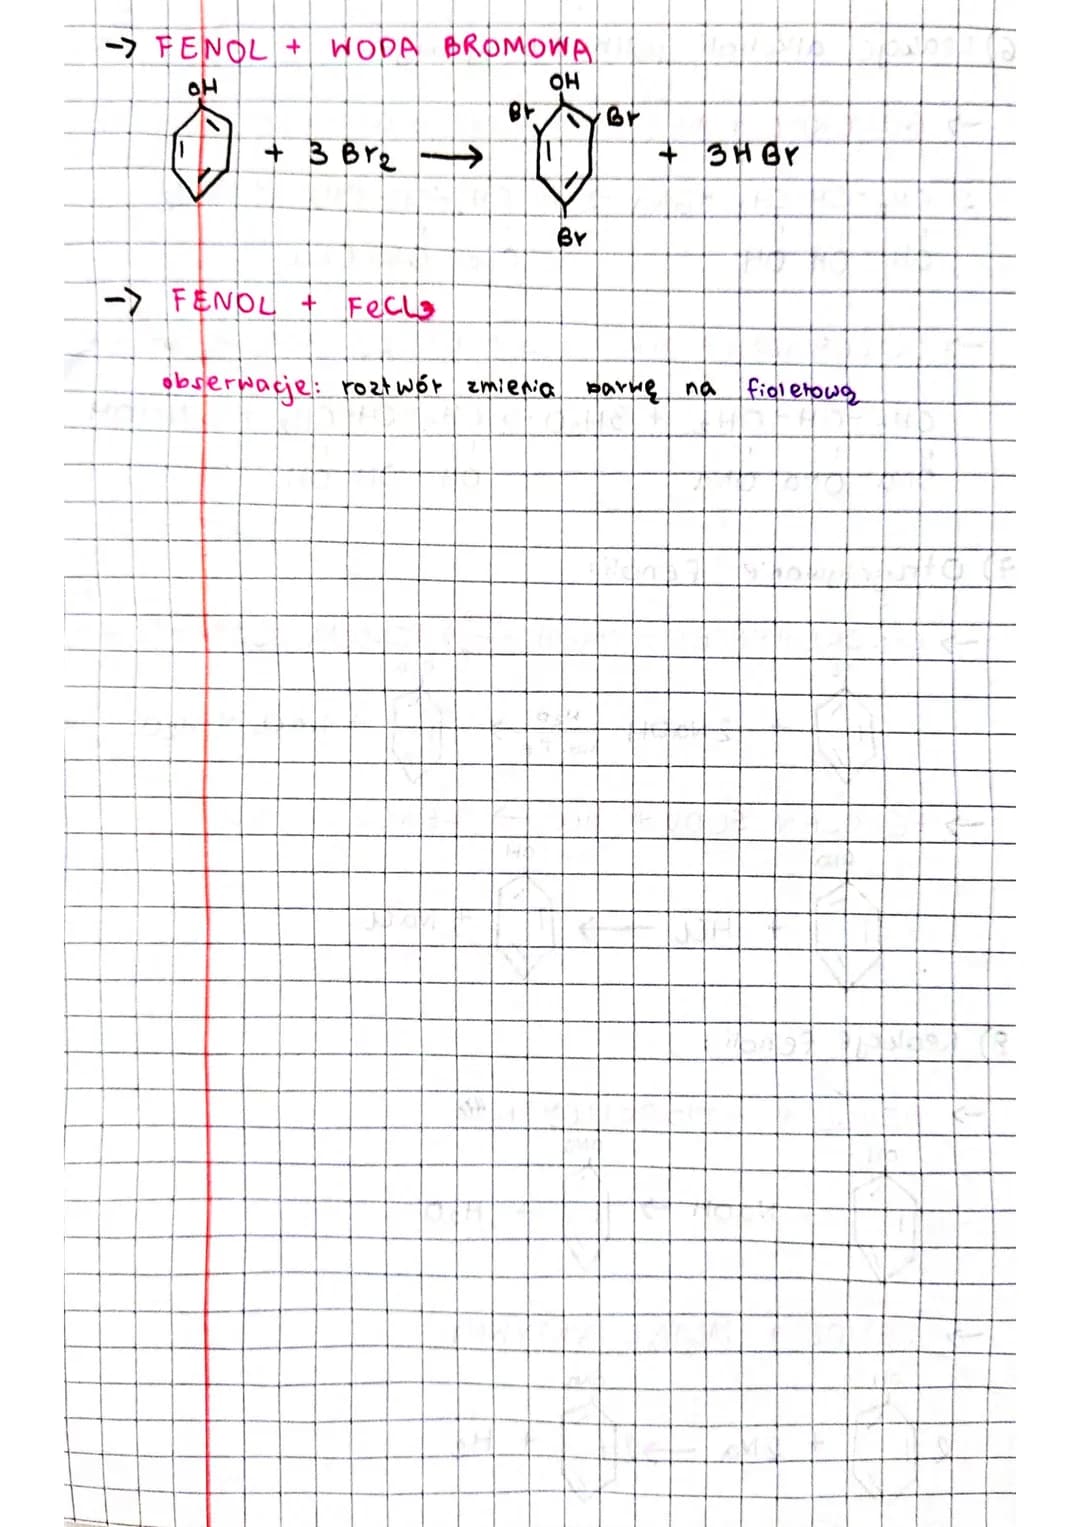 -> FENOL + WODA BROMOWA
OH OH
Br Br
+ 3 Br2 → + 3HBr
Br
-> FENOL + FeCl3
obserwacje: roztwór zmienia barwę na fioletową